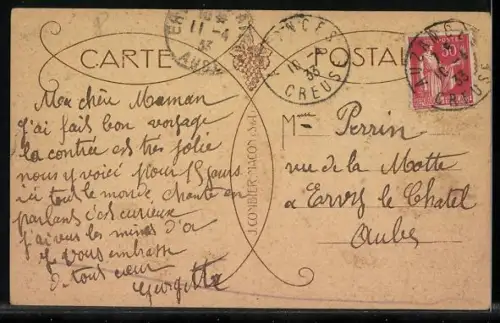 CARTE POSTALE
11-4
33
AUBE
10
33
CREUSE
AUZANCES
CREUSE
50
J. COMBIER MACON
Ma chère Maman
j'ai fait bon voyage
la contrée est très jolie
nous y voici pour 15 jours
ici tout le monde chante en
parlant c'est curieux
j'ai vu les mines d'or
Je vous embrasse
de tout cœur
Georgette
Mme Perrin
rue de la Motte
à Ervy le Chatel
Aube